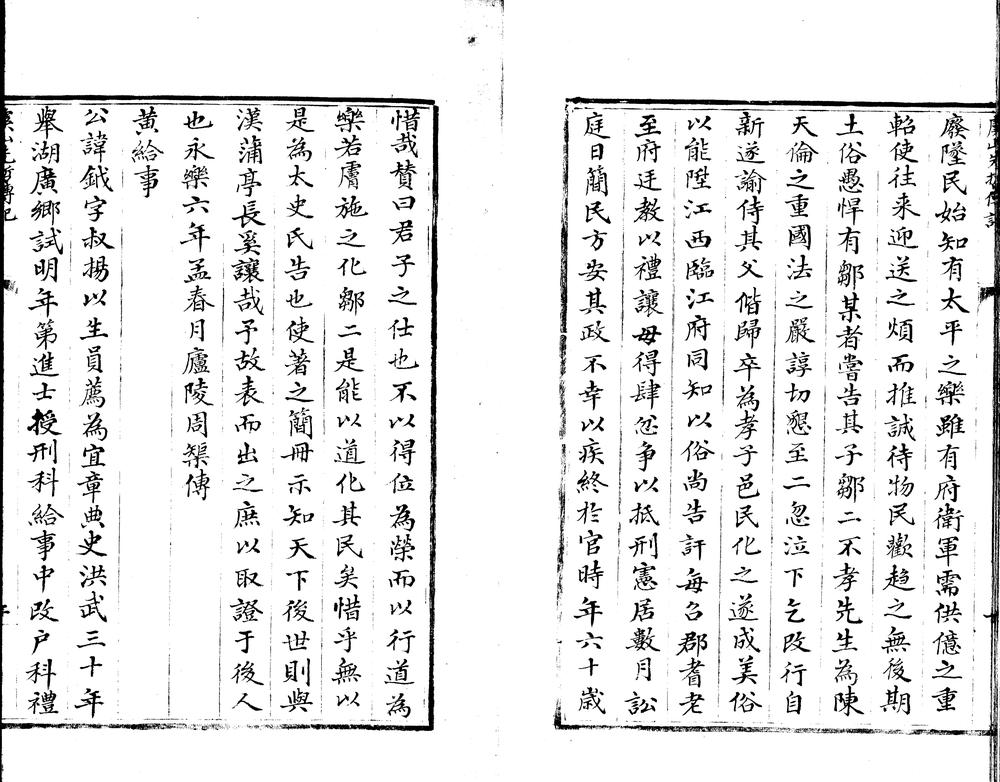 廢墜民始知有太平之樂雖有府衛軍需供億之重
軺使往来迎送之煩而推誠待物民歡趋之無後期
土俗愚悍有鄒某者嘗告其子鄒二不孝先生為陳
天倫之重國法之嚴諄切懇至二忽泣下乞改行自
新遂諭侍其父偕歸卒為孝子邑民化之遂成美俗
以能陞江西臨江府同知以俗尚告訐每召郡耆老
至府迋教以禮讓毋得肆忿争以抵刑憲居數月訟
庭日簡民方安其政不幸以疾終於官時年六十歲
惜哉賛曰君子之仕也不以得位為榮而以行道為
樂若膚施之化鄒二是能以道化其民矣惜乎無以
是為太史氏告也使著之簡冊示知天下後世則與
漢蒲亭長奚讓哉予故表而出之庶以取證于後人
也永樂六年孟春月廬陵周榘傳
黄給事
公諱鉞字叔揚以生員薦為宜章典史洪武三十年
舉湖廣鄉試明年第進士授刑科給事中改户科禮